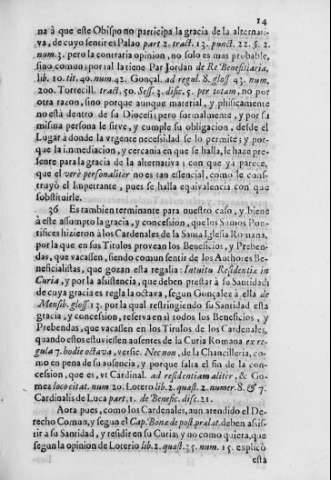 14
na à que este Obispo no participa la gracia de la alternati-
va, de cuyo sentir es Palao part 2. tract. 13. punct. 22. §. 2.
num. 3. pero la contraria opinion, no solo es mas probable,
sino comun; por tal la tiene Pat Jordan de Re Beneficiaria,
lib. 10. tit. 40. num. 42. Gonçal. ad regul. 8. gloss. 43. num,
200. Torrecill. tract. 50. Sess. 3. disic. 5. per totam, no por
otra razon, sino porque aunque material, y phisicamente
no està dentro de su Diocesi; pero formalmente, y por su
misma persona le sirve, y cumple su obligacion, desde el
Lugar à donde la urgente necessidad se lo permite; y por-
que la immediacion, y cercania en que se halla, le hace pre-
sente para la gracia de la alternativa; con que yà parece,
que el verè personalitèr no es tan essencial, como le cons-
truyò el Impetrante, pues se halla equivalencia con que
substituirle.
36 Es tambien terminante para nuestro caso, y biene
à este assumpto la gracia, y concession, que los Sumos Pon-
tifices hizieron à los Cardenales de la Santa Iglesia Romana,
por la que en sus Titulos provean los Beneficios, y Preben-
das, que vacassen, siendo comun sentir de los Authores Be-
neficialistas, que gozan esta regalia: Intuitu Residentiæ in
Curia, y por la assistencia, que deben prestar à su Santidad;
de cuya gracia es regla la octava, segun Gonçalez à ella de
Mensib. gloss. 13. por la qual restringiendo su Santidad esta
gracia, y concession, reserva en sì todos los Beneficios, y
Prebendas, que vacassen en los Titulos de los Cardenales,
quando estos estuviessen ausentes de la Curia Romana ex re-
gula 7. hodie octava, versic. Nec non, de la Chancilleria, co-
mo en pena de su ausencia, y porque falta el fin de la con-
cession, que es, ut Cardinal. ad residentiam aliter, & Go-
mez loco citat. num 20. Lotero lib. 2. quæst. 2. numer. 8. & 7.
Cardinalis de Luca part. 1. de Benefic. disc. 21.
Aora pues, como los Cardenales, aun atendido el De-
recho Comun, y segun el Cap. Bonæ de post. prælat. deben assis-
tir à su Santidad, y residir en su Curia; y no como quiera, que
segun la opinion de Loterio lib. 2. quæst. 35. num. 15. explicò
esta